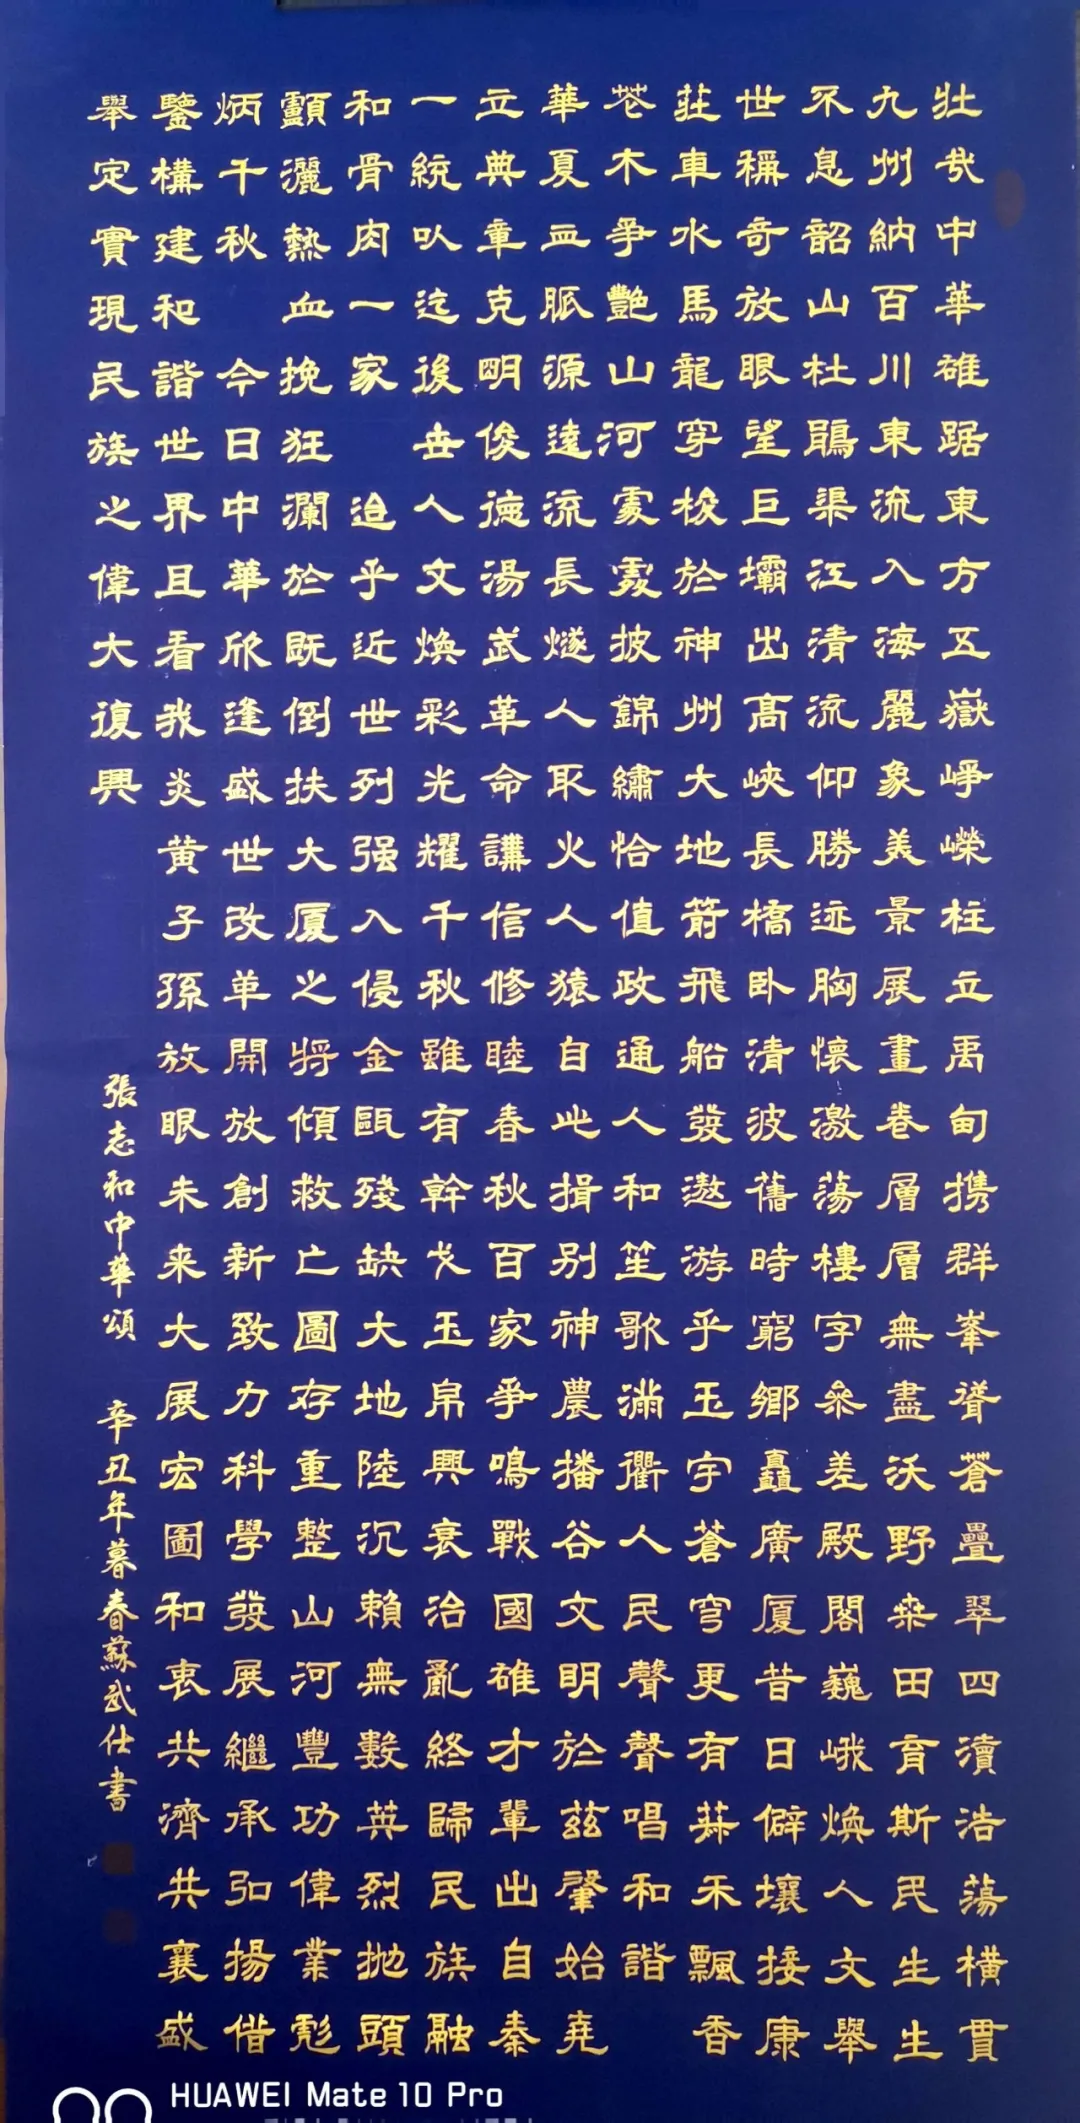 壯哉中華雄踞東方五嶽崢嶸柱立禹甸攜群峯聳蒼疊翠四瀆浩蕩橫貫
九州納百川東流入海麗象美景展畫卷層層無盡沃野桑田育斯民生生
不息韶山杜鵑渠江清流仰勝迹胸懷激蕩樓宇參差殿閣巍峨煥人文舉
世稱奇放眼望巨壩出高峽長橋臥清波舊時窮鄉矗廣厦昔日僻壤接康
莊車水馬龍穿梭於神州大地箭飛船發遨游乎玉宇蒼穹更有菽禾飄香
花木爭艷山河處處披錦繡恰值政通人和笙歌滿衢人民聲聲唱和諧
華夏血脈源遠流長燧人取火人猿自此揖別神農播谷文明於茲肇始堯
立典章克明俊德湯武革命講信修睦春秋百家爭鳴戰國雄才輩出自秦
一統以迄後世人文煥彩光耀千秋雖有幹戈玉帛興衰治亂終歸民族融
和骨肉一家迨乎近世列强入侵金甌殘缺大地陸沉賴無數英烈抛頭
顱灑熱血挽狂瀾於既倒扶大厦之將傾救亡圖存重整山河豐功偉業彪
炳千秋今日中華欣逢盛世改革開放創新致力科學發展繼承弘揚借
鑒構建和諧世界且看我炎黄子孫放眼未来大展宏圖和衷共濟共襄盛
舉定實現民族之偉大復興
張志和中華頌 辛丑年暮春蘇武仕書
HUAWEI Mate 10 Pro